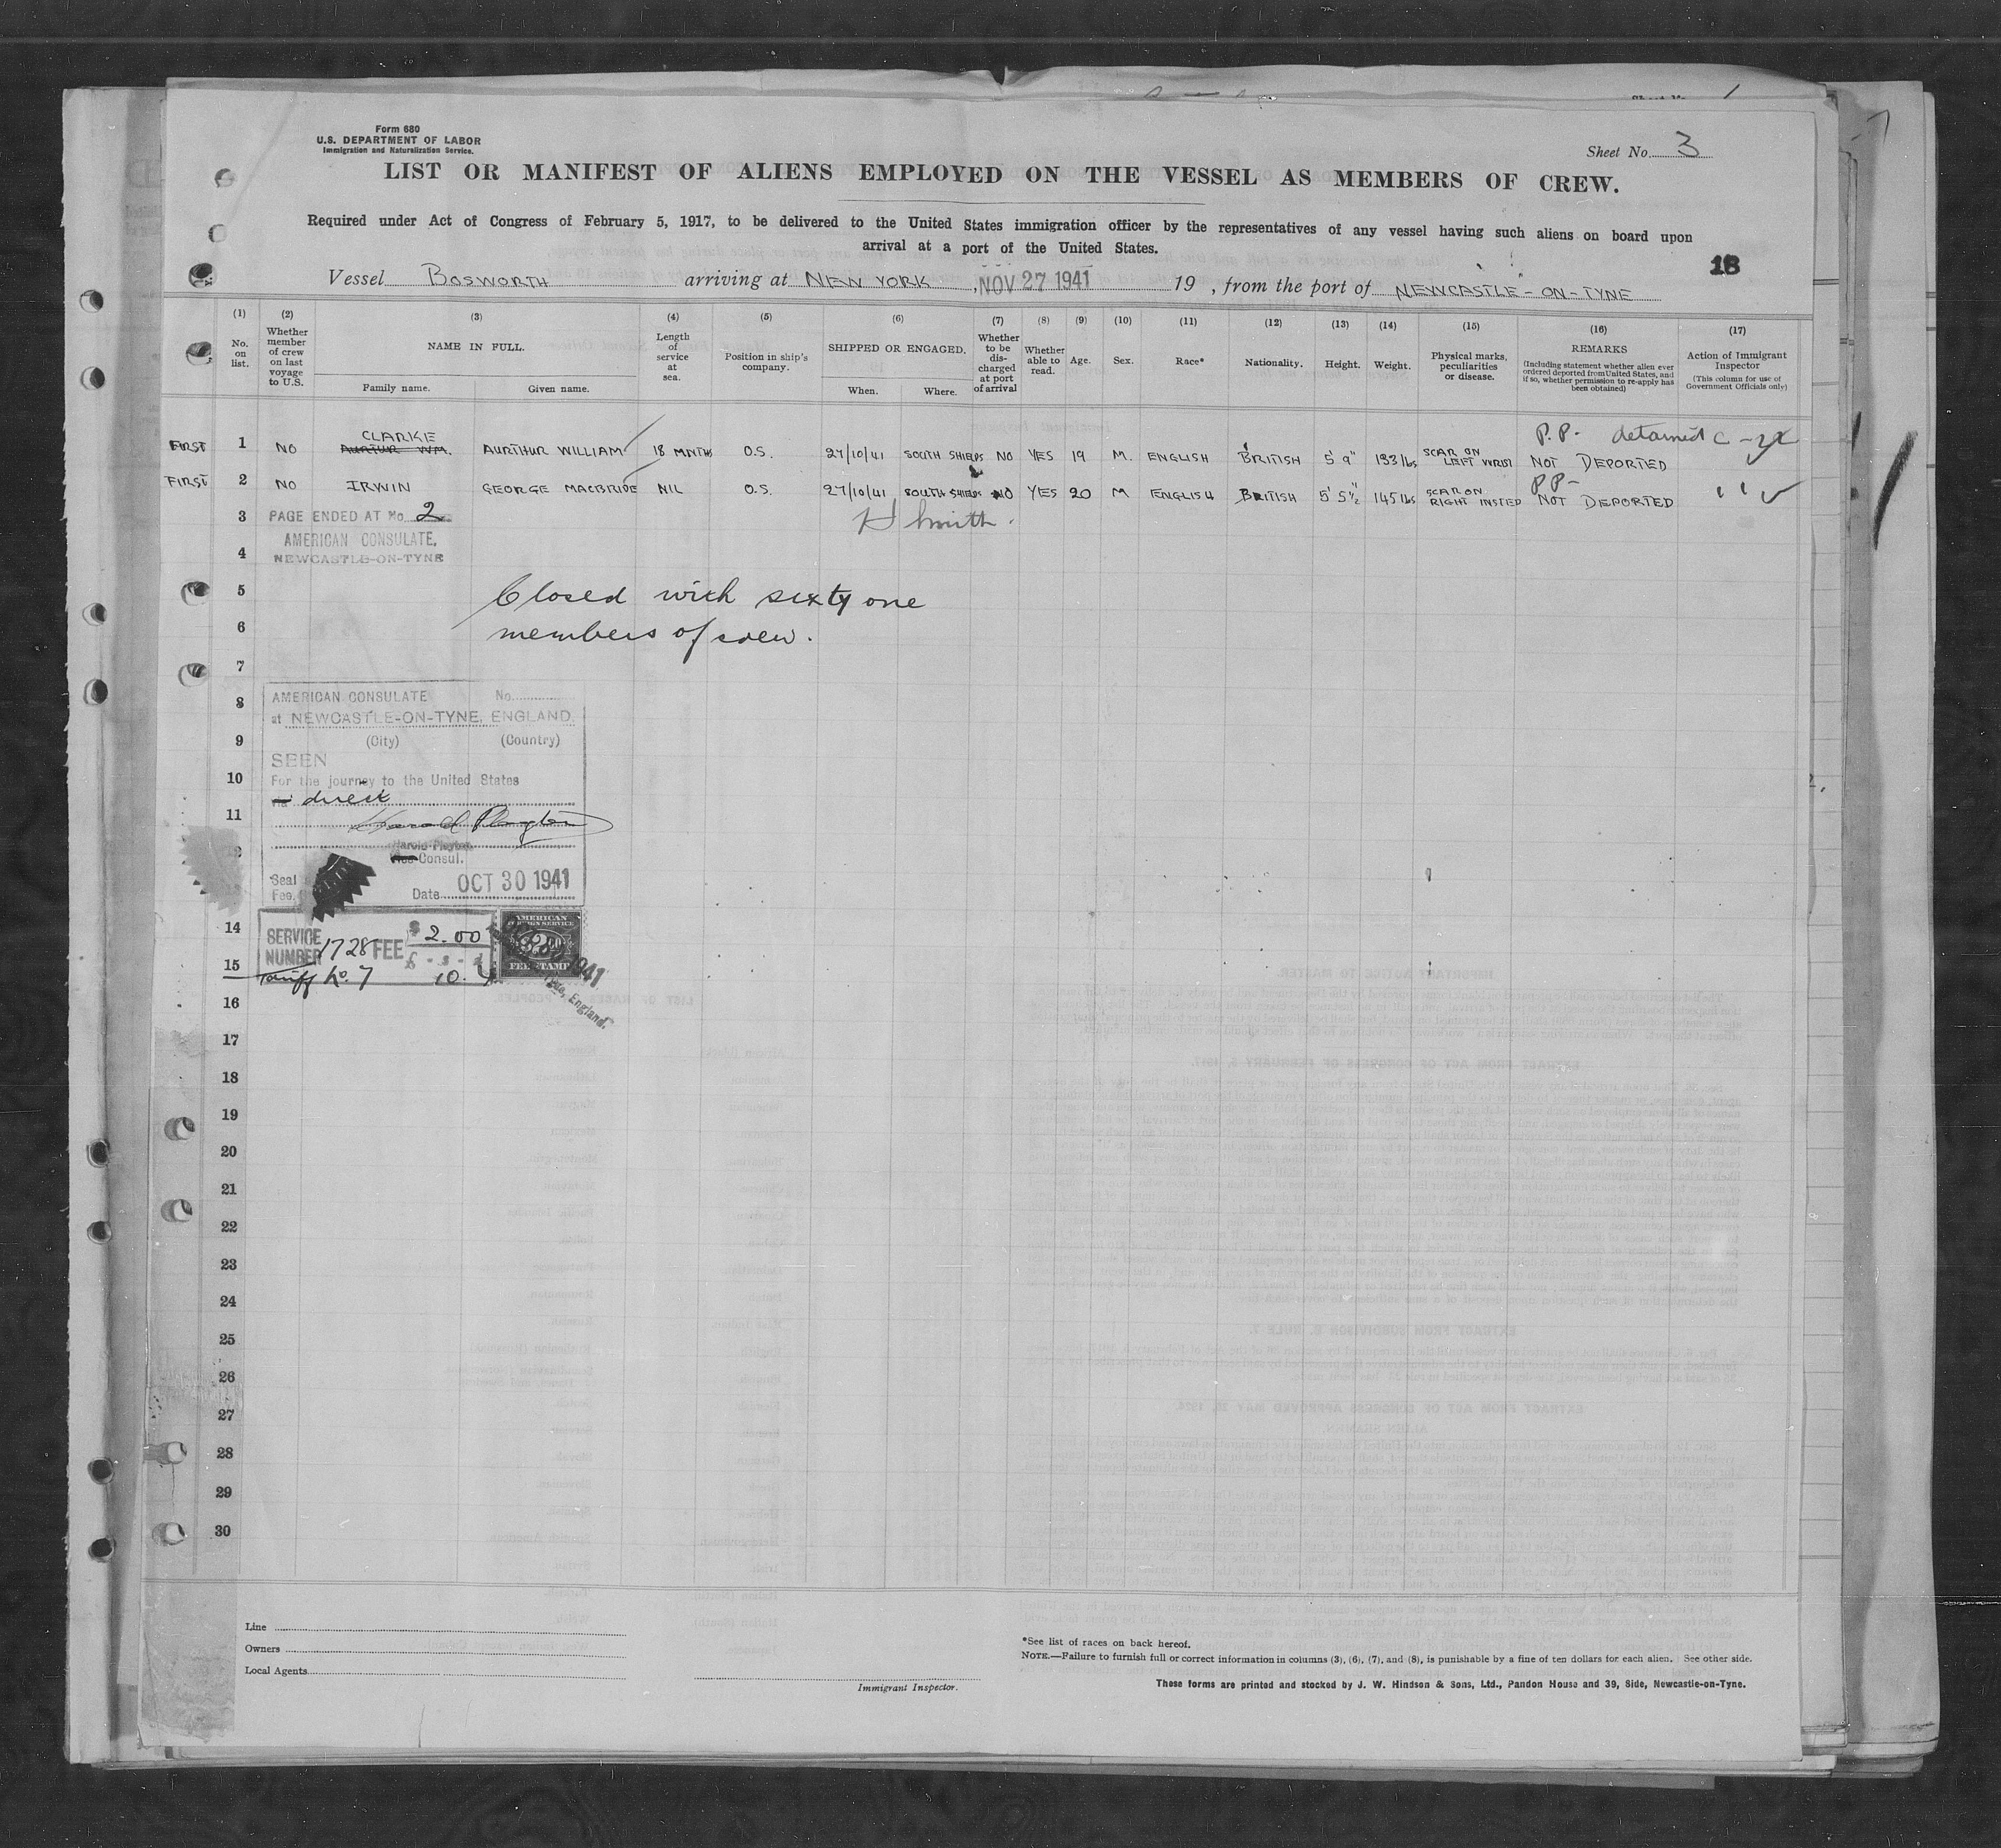 Form 680
U.S. DEPARTMENT OF LABOR
Immigration and Naturalization Service.
Sheet No. 3
LIST OR MANIFEST OF ALIENS EMPLOYED ON THE VESSEL AS MEMBERS OF CREW.
Required under Act of Congress of February 5, 1917, to be delivered to the United States immigration officer by the representatives of any vessel having such aliens on board upon
arrival at a port of the United States.
18
Vessel BOSWORTH arriving at NEW YORK, NOV 27 1941 19 , from the port of NEWCASTLE-ON-TYNE
(1) (2) (3) (4) (5) (6) (7) (8) (9) (10) (11) (12) (13) (14) (15) (16) (17)
No. on list.
Whether member of crew on last voyage to U.S.
NAME IN FULL.
Family name. Given name.
Length of service at sea.
Position in ship's company.
SHIPPED OR ENGAGED.
When. Where.
Whether to be discharged at port of arrival
Whether able to read.
Age.
Sex.
Race*
Nationality.
Height.
Weight.
Physical marks, peculiarities or disease.
REMARKS
(Including statement whether alien ever ordered deported from United States, and if so, whether permission to re-apply has been obtained)
Action of Immigrant Inspector
(This column for use of Government Officials only)
CLARKE P.P. detained
FIRST 1 NO AURTUR WM. AURTHUR WILLIAM 18 MNTHS O.S. 27/10/41 SOUTH SHIELDS NO YES 19 M. ENGLISH BRITISH 5' 9" 133 lbs SCAR ON LEFT WRIST NOT DEPORTED
PP-
FIRST 2 NO IRWIN GEORGE MACBRIDE NIL O.S. 27/10/41 SOUTH SHIELDS NO YES 20 M ENGLISH BRITISH 5' 5½" 145 lbs SCAR ON RIGHT INSTEP NOT DEPORTED
3 PAGE ENDED AT No. 2 H Smith.
AMERICAN CONSULATE,
4 NEWCASTLE-ON-TYNE
5 Closed with sixty one
6 members of crew.
7
8 AMERICAN CONSULATE No.
at NEWCASTLE-ON-TYNE, ENGLAND.
9 (City) (Country)
SEEN
10 For the journey to the United States
via direct
11
12
Consul.
13 Seal
Fee.
Date OCT 30 1941
14 SERVICE NUMBER 1728 FEE $ 2.00
£ - s - d
15 Tariff No. 7 10.
AMERICAN
FOREIGN SERVICE
FEE STAMP
1941
England.
16
17
18
19
20
21
22
23
24
25
26
27
28
29
30
Line
Owners
Local Agents
Immigrant Inspector.
*See list of races on back hereof.
NOTE.—Failure to furnish full or correct information in columns (3), (6), (7), and (8), is punishable by a fine of ten dollars for each alien. See other side.
These forms are printed and stocked by J. W. Hindson & Sons, Ltd., Pandon House and 39, Side, Newcastle-on-Tyne.